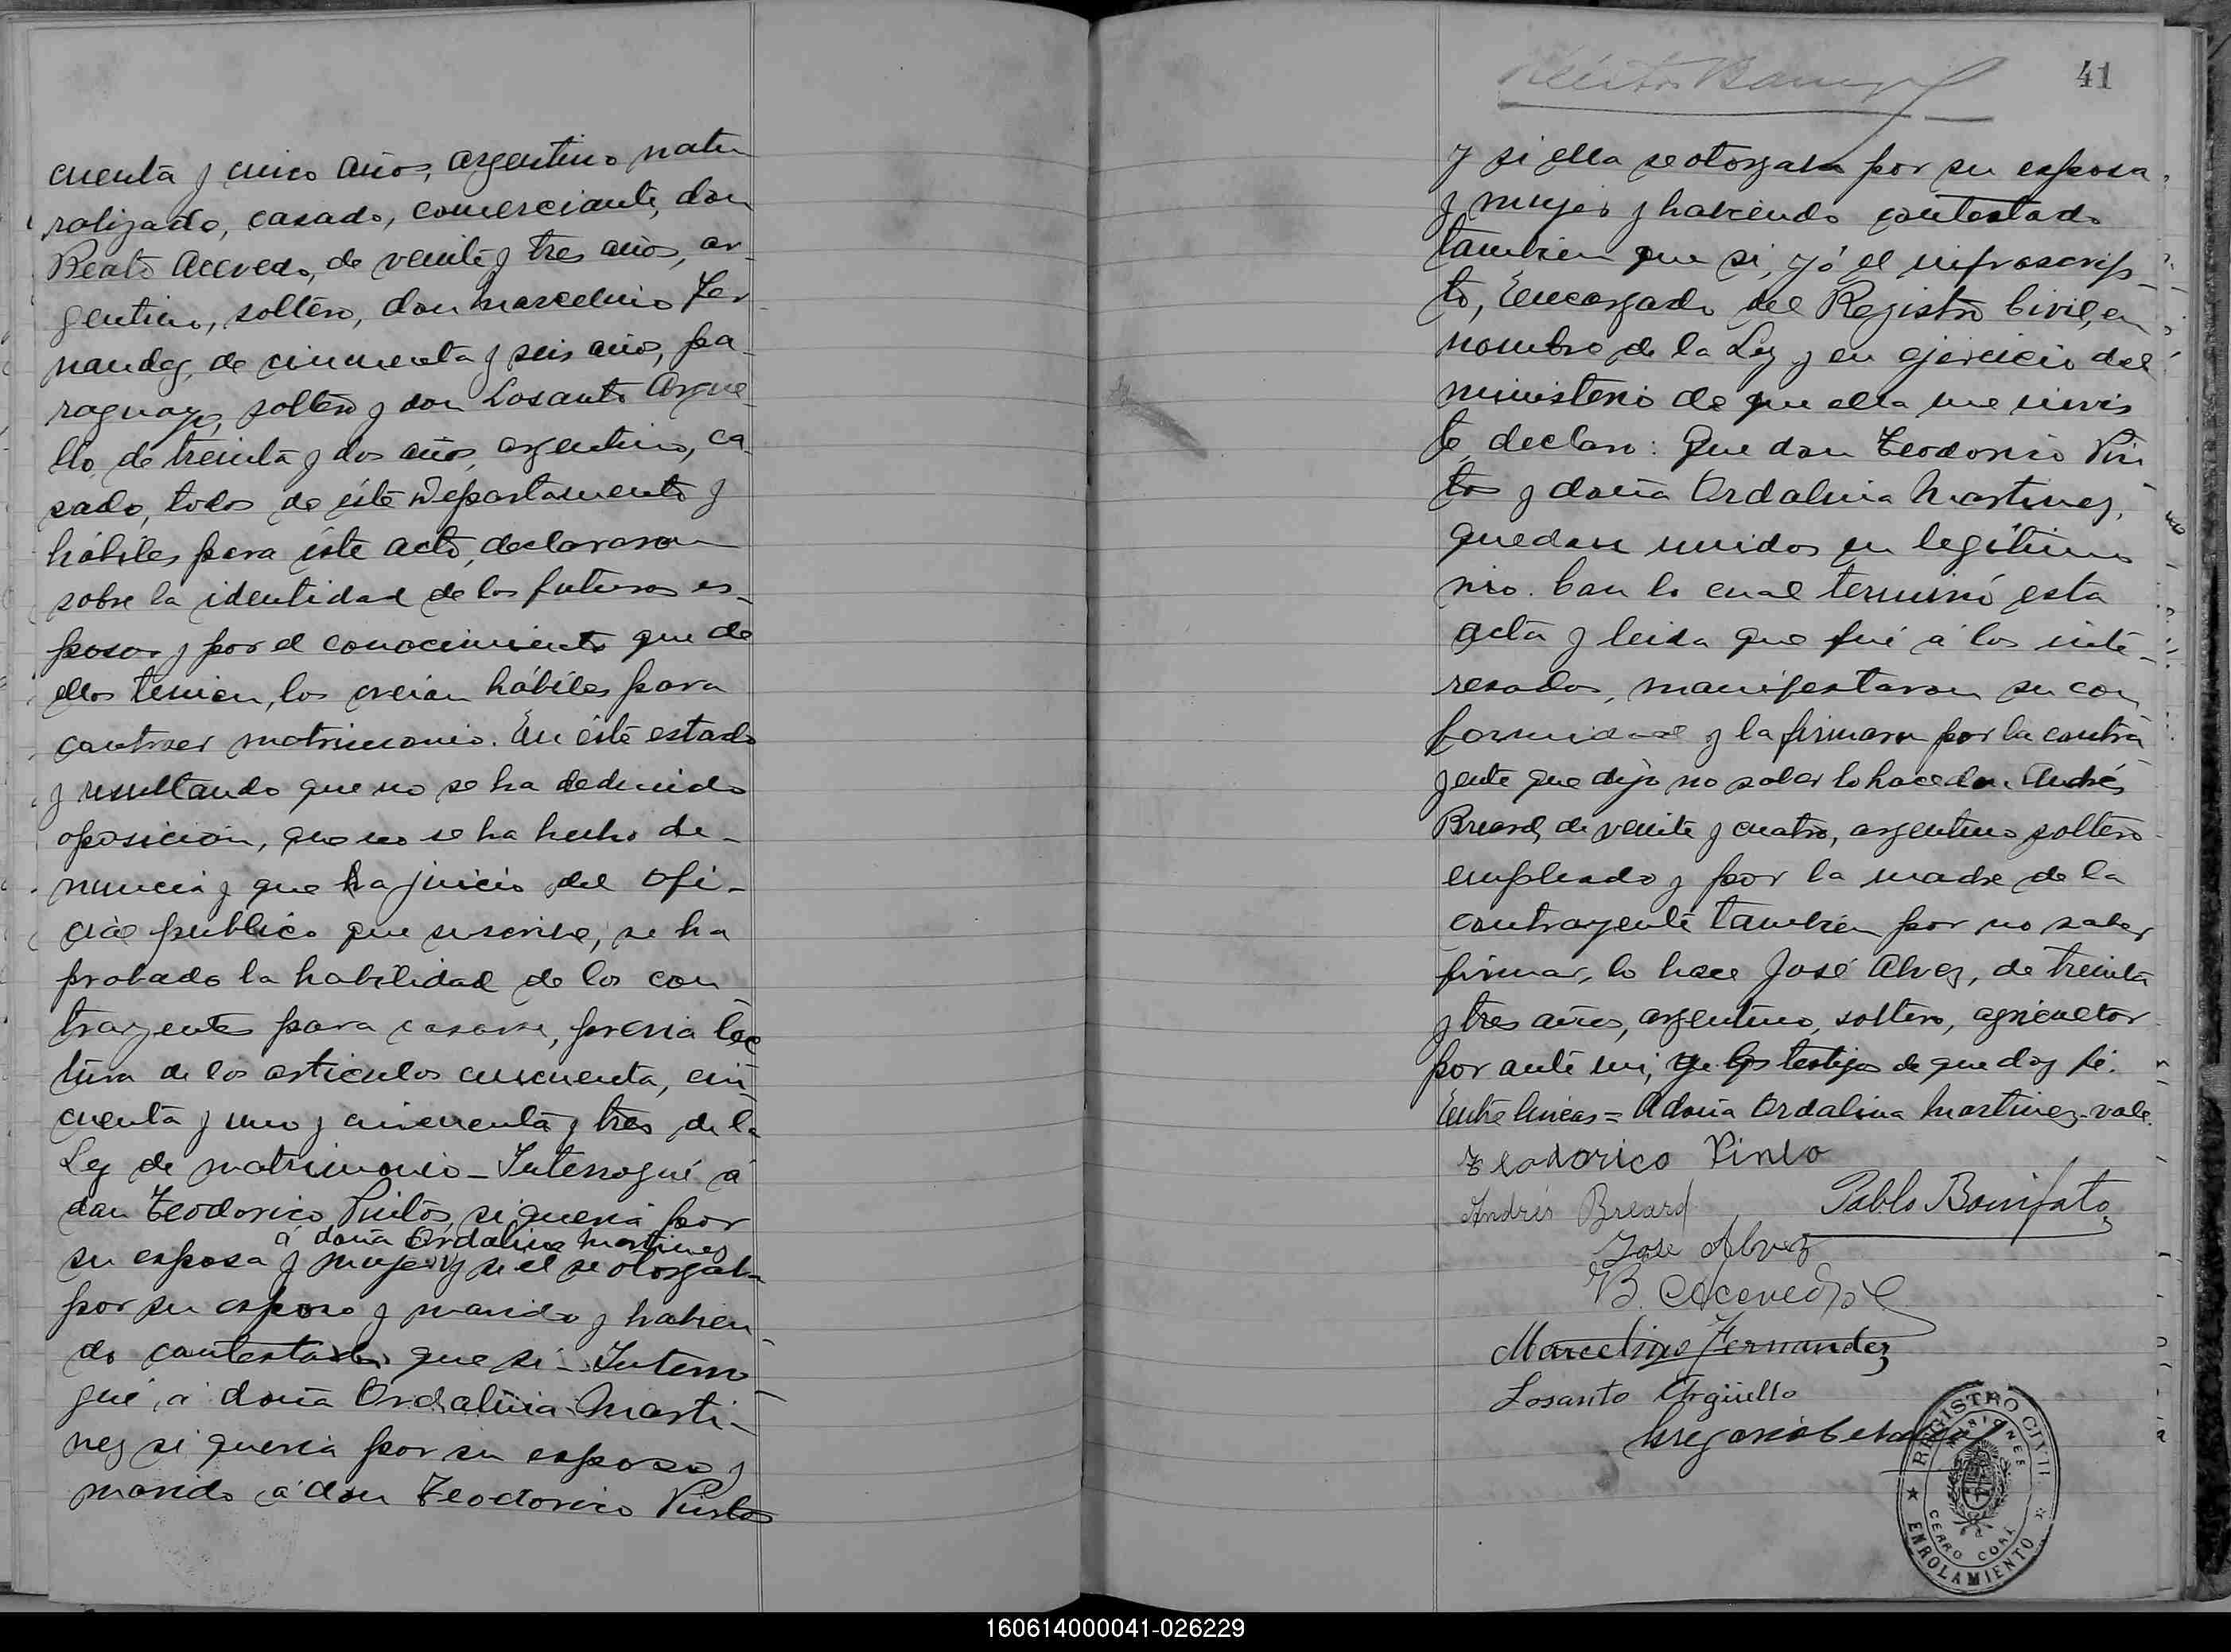 cuenta y cinco años, argentino natu
ralizado, casado, comerciante, don
Beato Acevedo, de veinte y tres años, ar-
gentino, soltero, don Marcelino Fer
nandez, de cincuenta y seis años, pa-
raguayo, soltero y don Losanto Argue-
llo, de treinta y dos años, argentino, ca-
sado, todos de éste Departamento y
hábiles para éste acto, declararon
sobre la identidad de los futuros es-
posos y por el conocimiento que de
ellos tenian, los creian hábiles para
contraer matrimonio. En éste estado
y resultando que no se ha deducido
oposición, que no se ha hecho de-
nuncia y que a juicio del ofi-
cial publico que suscribe, se ha
probado la habilidad de los con
trayentes para casarse, previa lec
tura de los articulos cincuenta, cin
cuenta y uno y cincuenta y tres de la
Ley de matrimonio - Interrogué á
don Teodorico Pintos, si queria por
á doña Ordalina Martinez
su esposa y mujer y si el se otorgaba
por su esposo y marido y habien
do contestado que si - Interro
gué á doña Ordalina Marti-
nez si queria por su esposo y
marido á don Teodorico Pintos
41
y si ella se otorgaba por su esposa
y mujer y habiendo contestado
tambien que si, yó el infrascrip-
to, Encargado del Registro Civil, en
nombre de la Ley y en ejercicio del
ministerio de que ella me invis
te, declaro: Que don Teodorico Pin
tos y doña Ordalina Martinez,
quedan unidos en legítimo
nio. Con lo cual terminó esta
acta y leida que fué á los inte-
resados, manifestaron su con
formidad y la firmaron por la contra
yente que dijo no saber lo hace don Andrés
Breard, de veinte y cuatro, argentino soltero
empleado y por la madre de la
contrayente tambien por no saber
firmar, lo hace José Alvez, de treinta
y tres años, argentino, soltero, agricultor
por ante mi, los testigos de que doy fé.
Entre lineas = A doña Ordalina Martinez - vale.
Teodorico Pinto
Andrés Breard Pablo Bonifato
Jose Alvez
B. Acevedo
Marcelino Fernandez
Losanto Argüello
Gregorio
REGISTRO CIVIL
MISIONES
CERRO CORA
ENROLAMIENTO
160614000041-026229